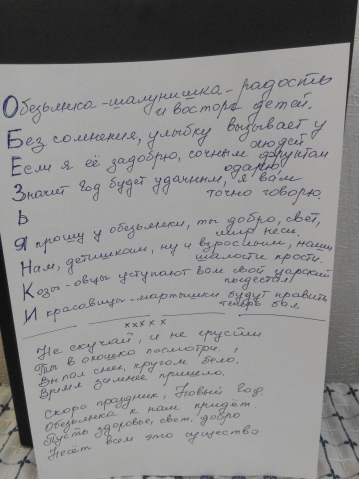 Обезьянка - шалунишка - радость
и восторг детей.
Без сомнения, улыбку вызывает у
людей
Если я её задобрю, сочным фруктом
одарю,
Значит год будет удачным, я вам
точно говорю.
Ь
Я прошу у обезьянки, ты добро, свет,
мир неси.
Нам, детишкам, ну и взрослым, наши
шалости прости.
Козы-овцы уступают вам свой царский
пьедестал
И красавицы-мартышки будут править
теперь бал
ххххх
Не скучай, и не грусти
Ты в окошко посмотри.
Выпал снег, кругом бело.
Время зимнее пришло.
Скоро праздник, Новый год
Обезьянка к нам придёт.
Пусть здоровье, свет, добро
Несёт всем это существо